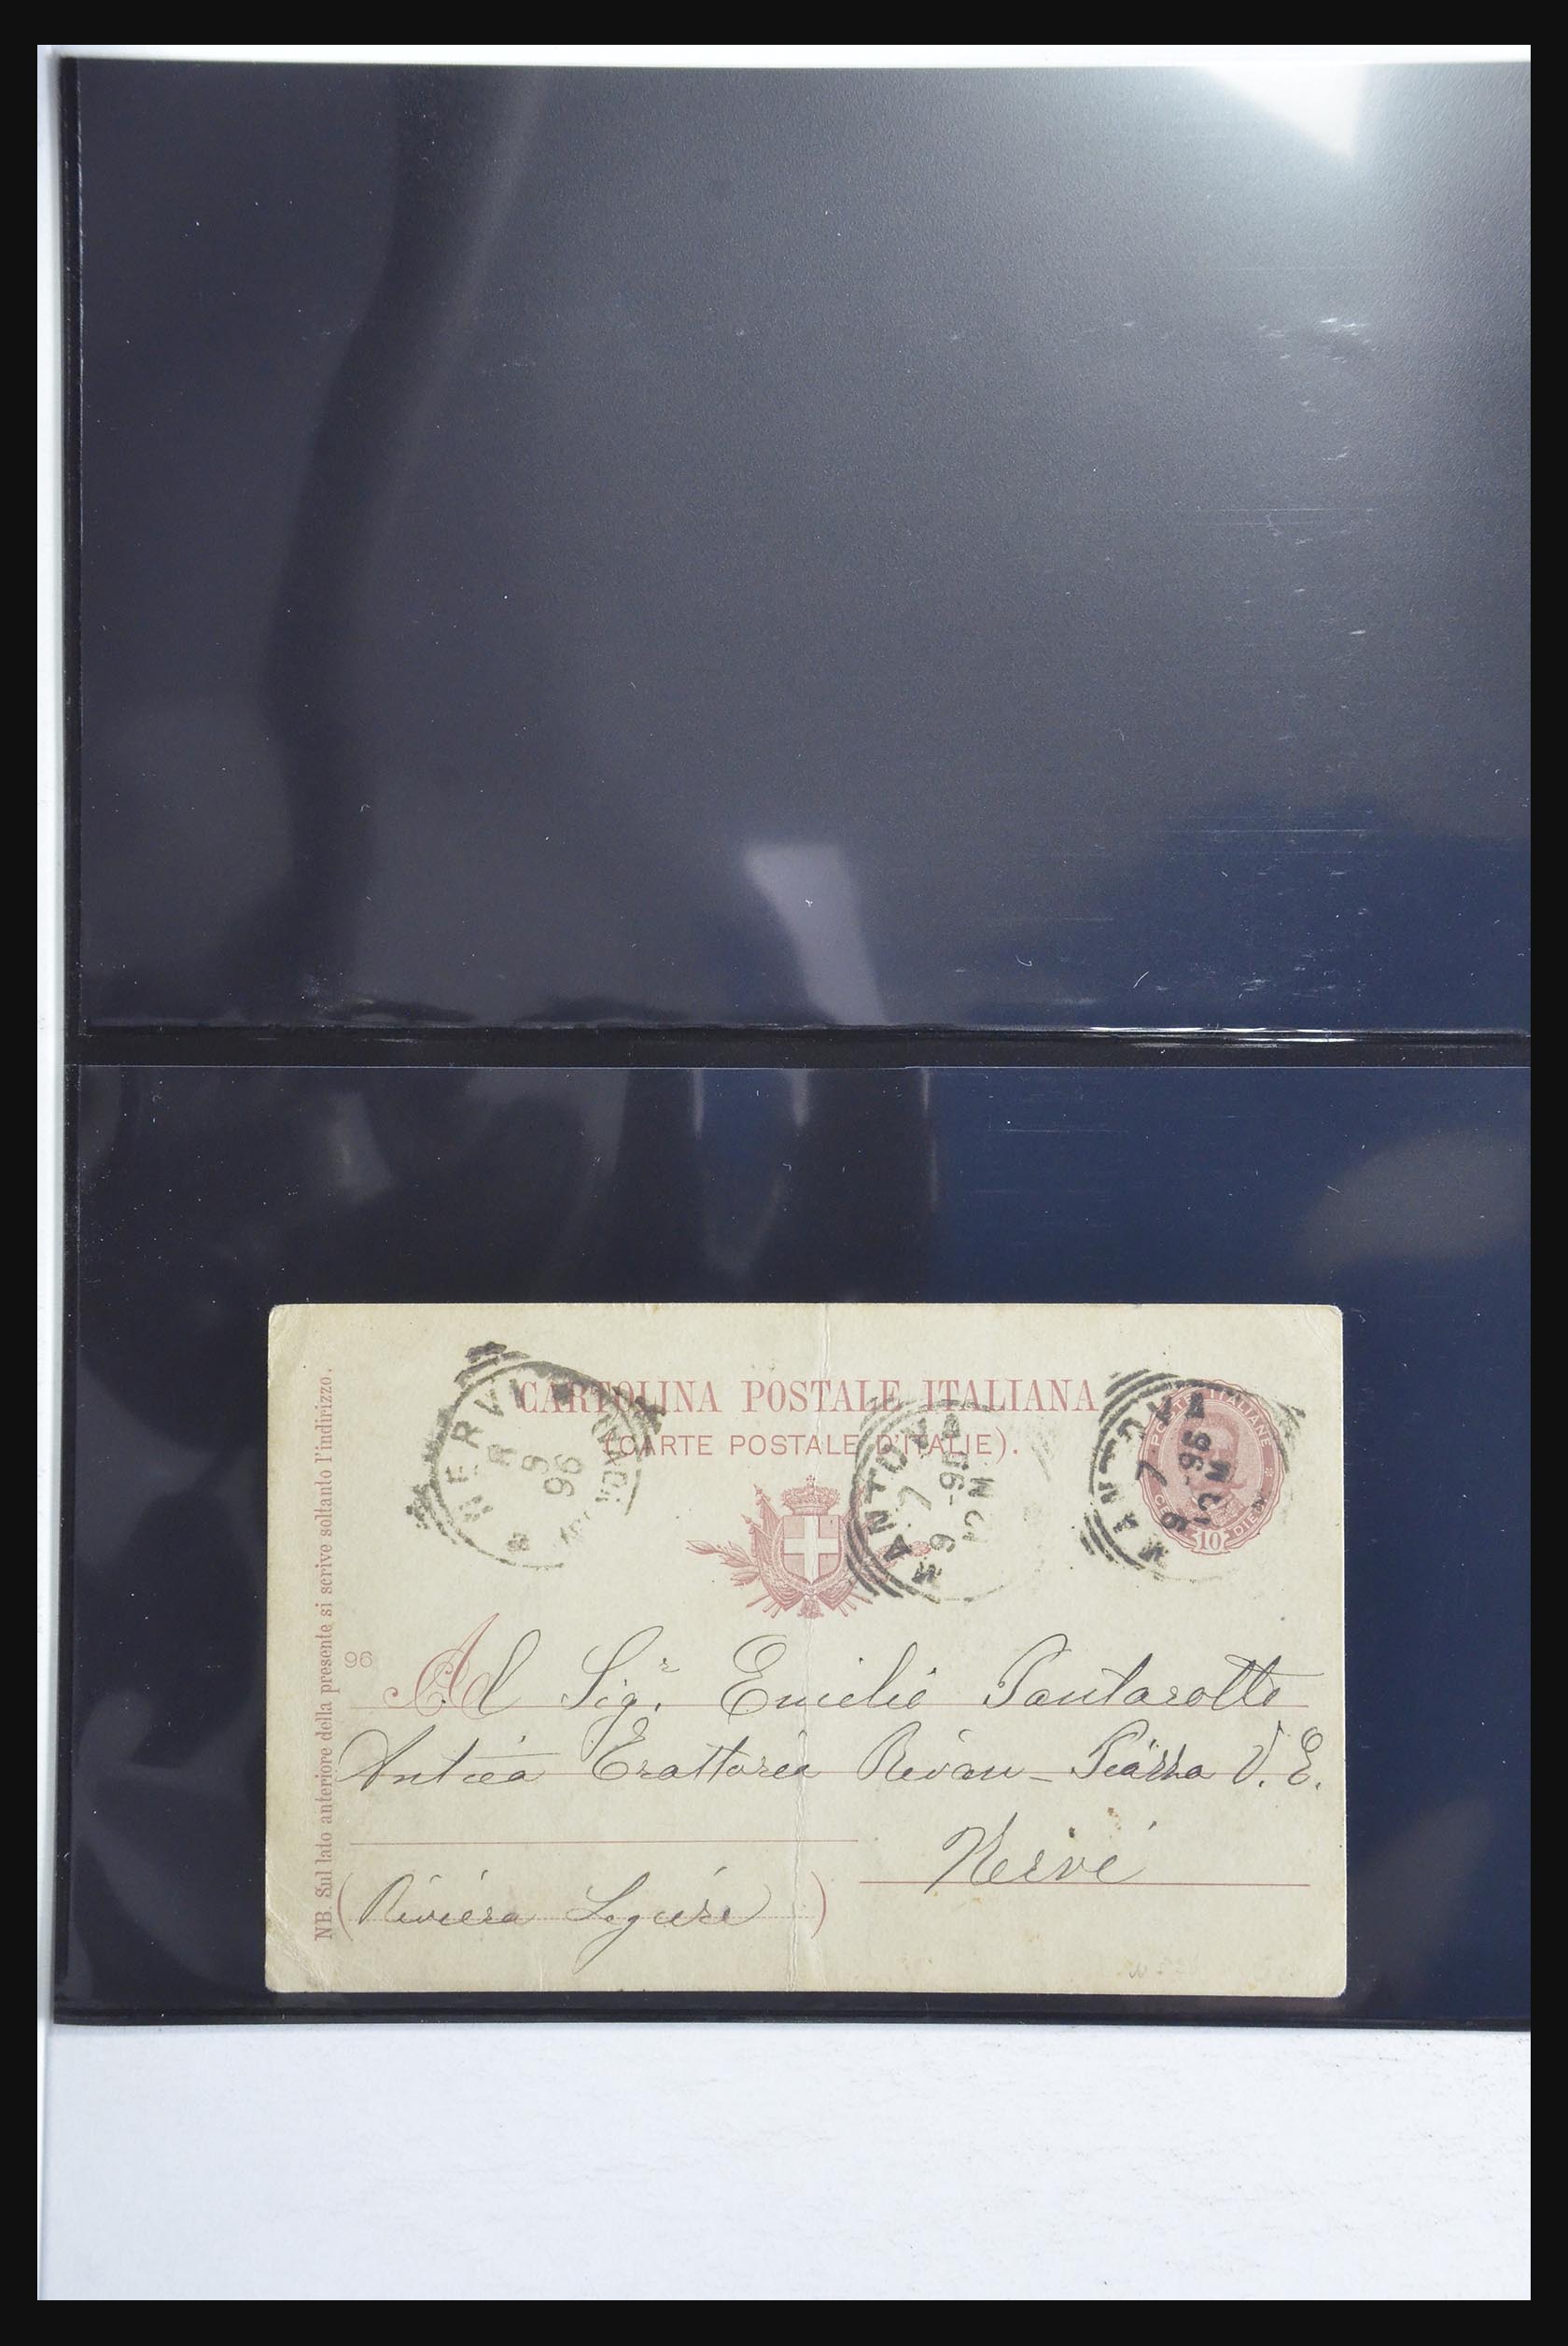 CARTOLINA POSTALE ITALIANA
(CARTE POSTALE D'ITALIE).
NERVI
9
96
MANTOVA
7
9-96
MANTOVA
7
9-96
POSTE ITALIANE
10
NB. Sul lato anteriore della presente si scrive soltanto l'indirizzo.
96
Al Sigr. Emilio Santarotto
Antica Trattoria Rivan - Piazza V. E.
Nervi
(Riviera Ligure)